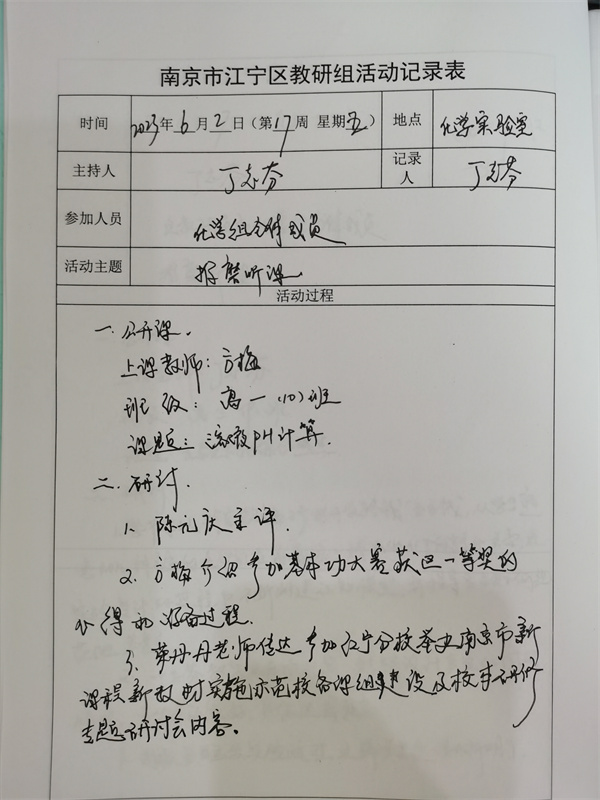 南京市江宁区教研组活动记录表
时间 2023年6月2日（第17周 星期五） 地点 化学实验室
主持人 丁志芬 记录人 丁志芬
参加人员 化学组全体成员
活动主题 听课
活动过程
一.公开课.
上课教师：方梅
班级：高一（10）班
课题：溶液pH计算.
二.研讨.
1、陈元庆主评.
2、方梅介绍参加基本功大赛获区一等奖的
心得和准备过程.
3、丹丹老师传达参加江宁分校举办南京市新
课程新教材实施示范校备课组建设及校本研修
专题研讨会内容。